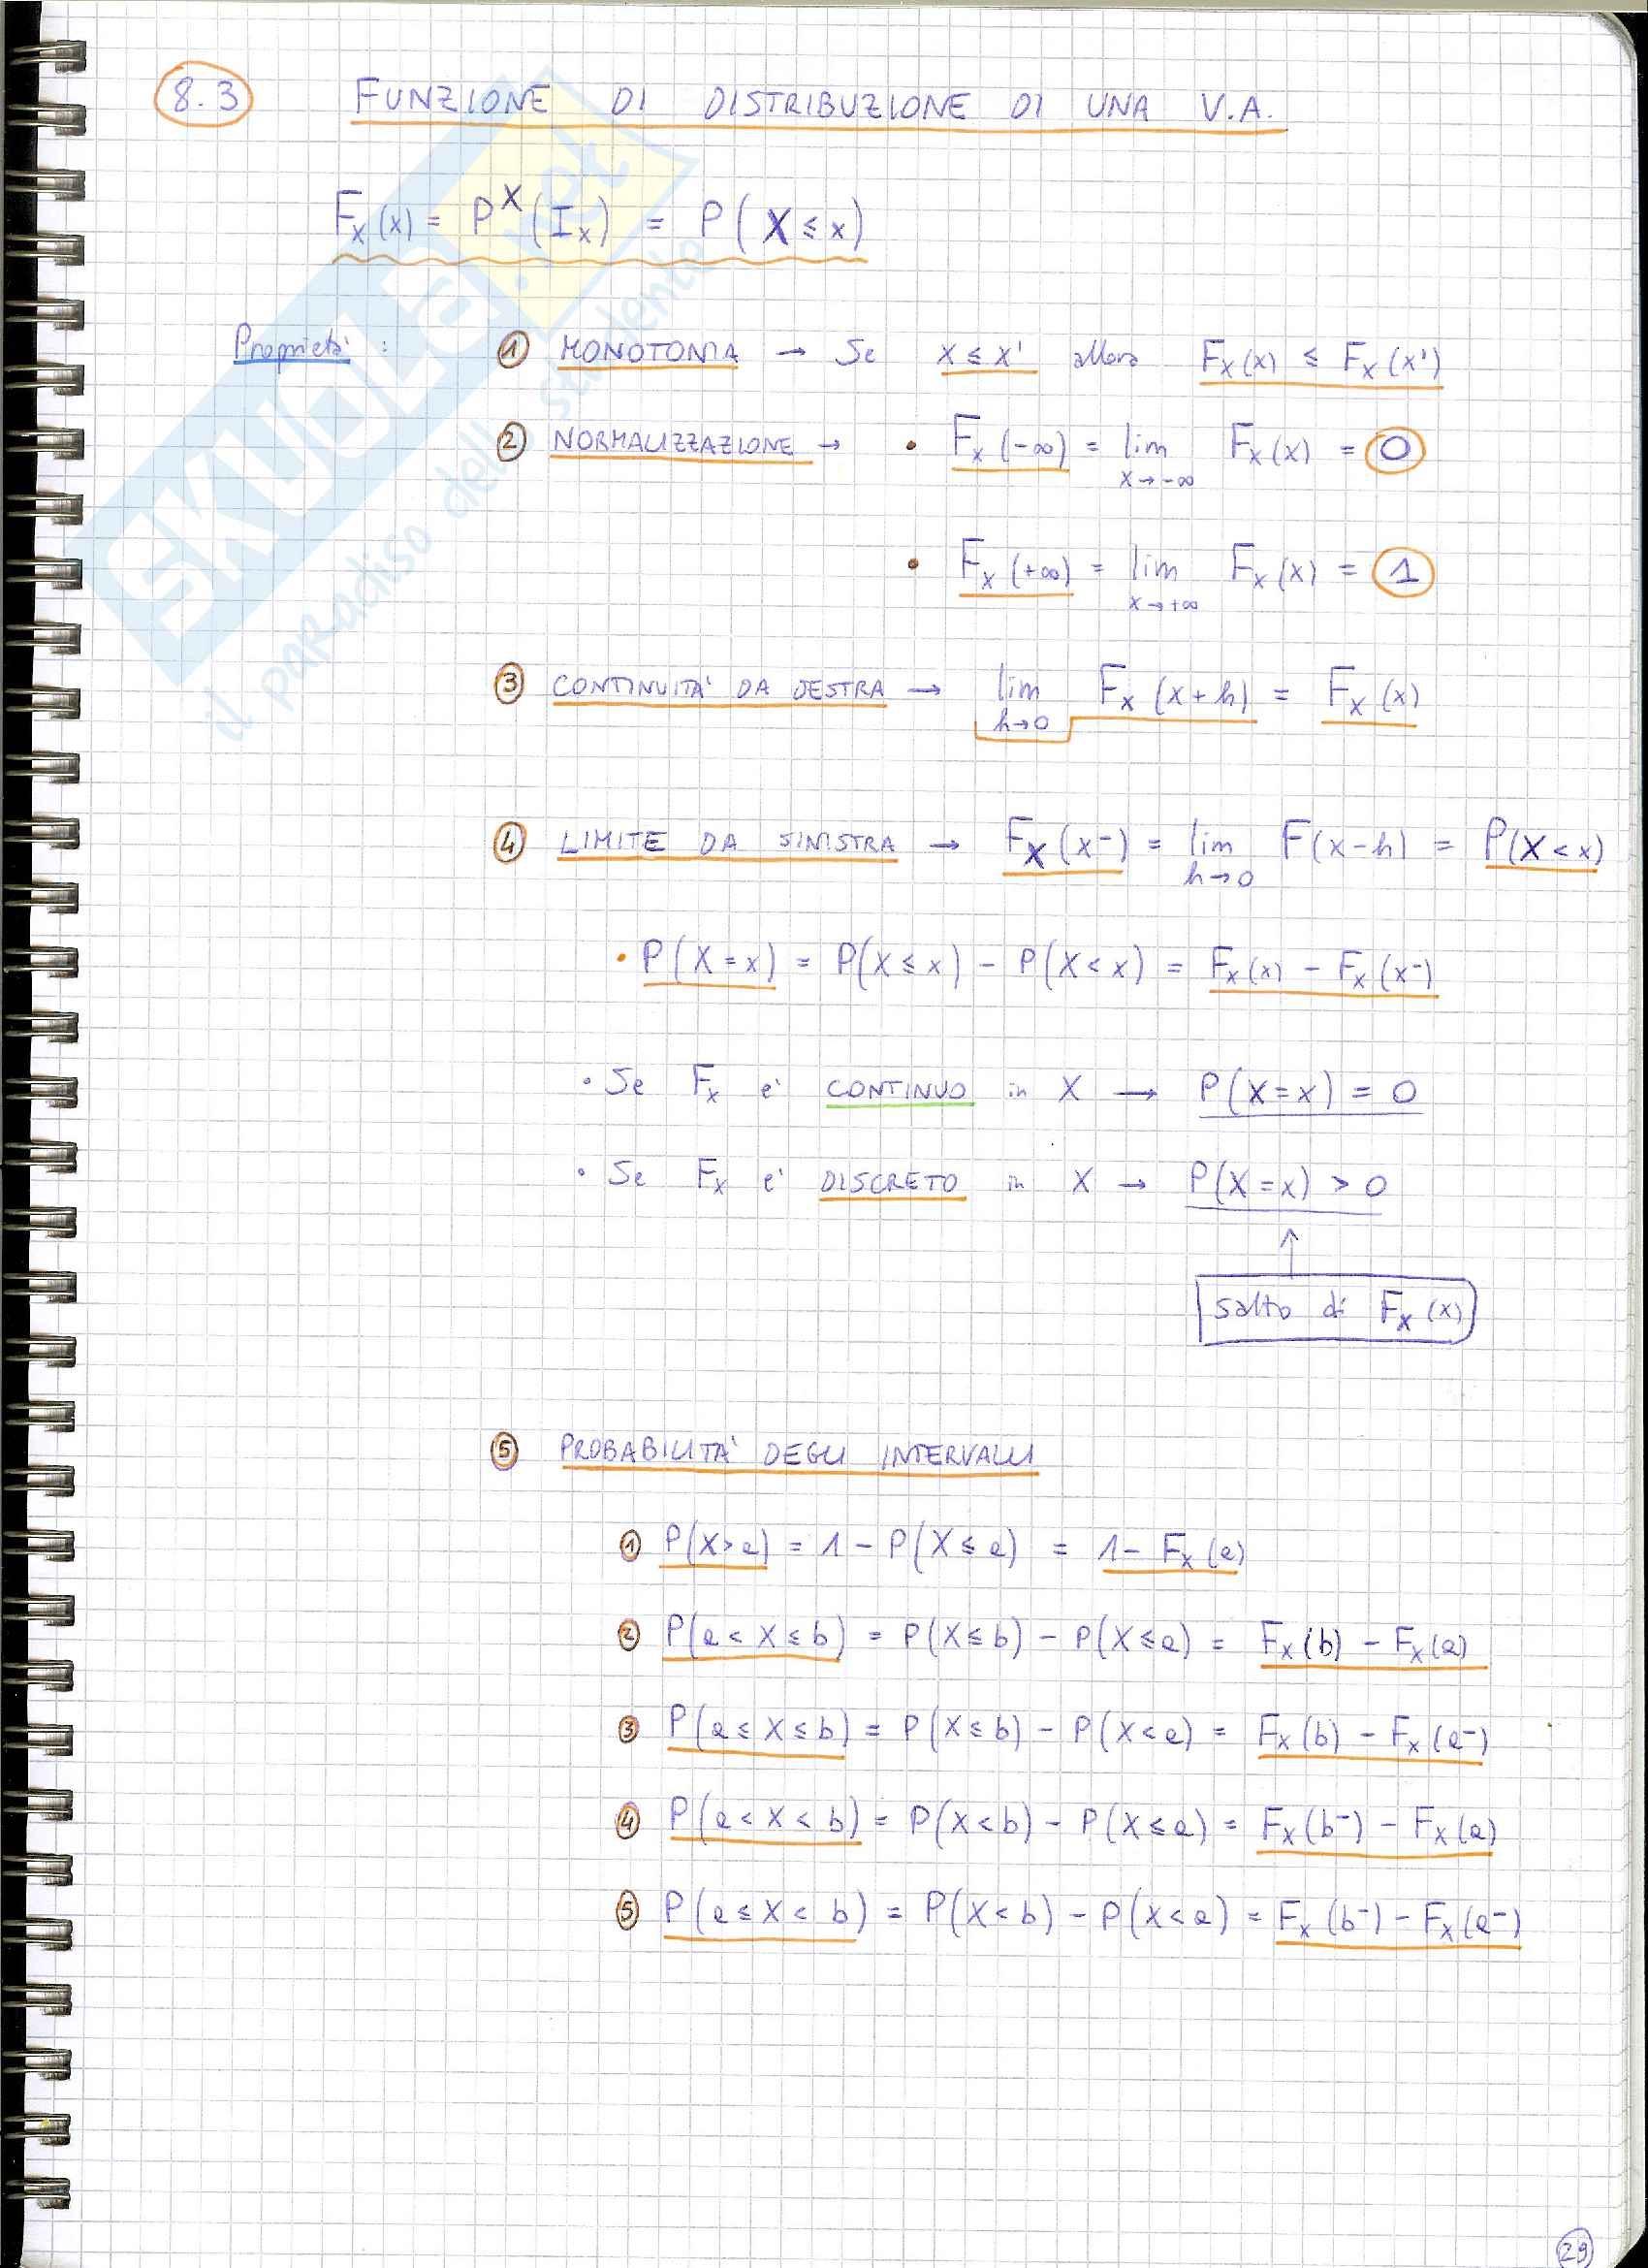 8.3 FUNZIONE DI DISTRIBUZIONE DI UNA V.A.
F_X(x) = P^X(I_x) = P(X ≤ x)
Proprietà : ① MONOTONIA → Se x ≤ x' allora F_X(x) ≤ F_X(x')
② NORMALIZZAZIONE → • F_X(-∞) = lim x→-∞ F_X(x) = 0
• F_X(+∞) = lim x→+∞ F_X(x) = 1
③ CONTINUITA' DA DESTRA → lim h→0 F_X(x+h) = F_X(x)
④ LIMITE DA SINISTRA → F_X(x⁻) = lim h→0 F(x-h) = P(X < x)
• P(X = x) = P(X ≤ x) - P(X < x) = F_X(x) - F_X(x⁻)
• Se F_X e' CONTINUO in X → P(X = x) = 0
• Se F_X e' DISCRETO in X → P(X = x) > 0
↑
salto di F_X(x)
⑤ PROBABILITA' DEGLI INTERVALLI
① P(X > a) = 1 - P(X ≤ a) = 1 - F_X(a)
② P(a < X ≤ b) = P(X ≤ b) - P(X ≤ a) = F_X(b) - F_X(a)
③ P(a ≤ X ≤ b) = P(X ≤ b) - P(X < a) = F_X(b) - F_X(a⁻)
④ P(a < X < b) = P(X < b) - P(X ≤ a) = F_X(b⁻) - F_X(a)
⑤ P(a ≤ X < b) = P(X < b) - P(X < a) = F_X(b⁻) - F_X(a⁻)
29
SKUOLA.net
il paradiso dello studente